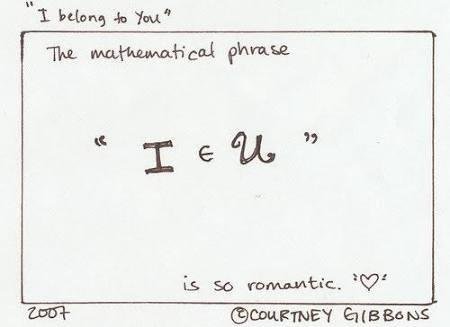 "I belong to You"
The mathematical phrase
" I ∈ U "
is so romantic. "♡"
2007 ©COURTNEY GIBBONS